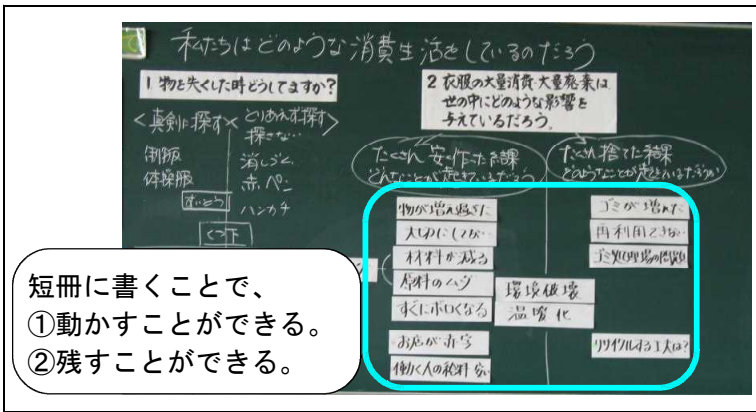 私たちはどのような消費生活をしているのだろう
1 物を失くした時どうしてますか?
<真剣に探す×とりあえず探す>
探さない…
制服
体操服
すいとう
くつ下
消しゴム
赤ペン
ハンカチ
2 衣服の大量消費・大量廃棄は
世の中にどのような影響を
与えているだろう。
たくさん安く作った結果
どんなことが起きているだろう
たくさん捨てた結果
どのようなことが起きているだろうか
物が増え過ぎた
大切にしない…
材料が減る
原料のムダ
すぐにボロくなる
お店が赤字
働く人の給料安い
環境破壊
温暖化
ゴミが増えた
再利用できない…
ゴミ処理場の問題
リサイクルする工夫は?
短冊に書くことで、
①動かすことができる。
②残すことができる。